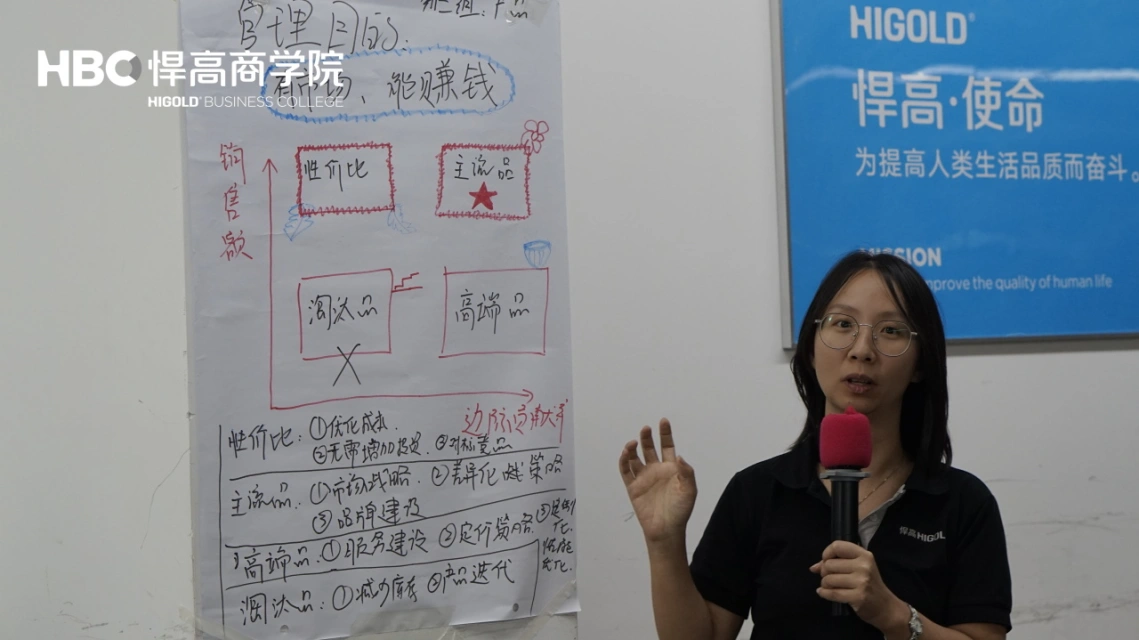 管理目的:
第三组:产品
HBC 悍高商学院
HIGOLD® BUSINESS COLLEGE
有市场、能赚钱
销售额
性价比
主流品
淘汰品
高端品
X
边际贡献
性价比: ①优化成本.
②无需增加投员 ③对标竞品
主流品: ①市场战略 ②差异化 策略
③品牌建设
高端品: ①服务建设 ②定价策略 ③
淘汰品: ①减少库存 ②产品迭代
HIGOLD®
悍高·使命
为提高人类生活品质而奋斗。
MISSION
improve the quality of human life
悍高HIGOL